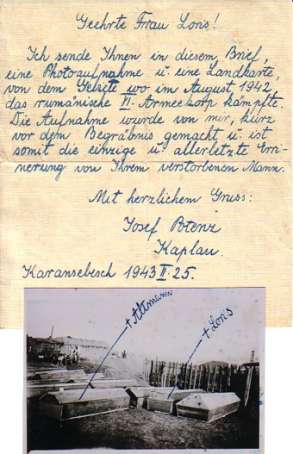 Geehrte Frau Loris!
Ich sende Ihnen in diesem Brief,
eine Photoaufnahme u. eine Landkarte,
von dem Gebiete wo im August 1942,
das rumänische VI. Armeekorp kämpfte.
Die Aufnahme wurde von mir, kurz
vor dem Begräbnis gemacht u. ist
somit die einzige u. allerletzte Erin-
nerung von Ihrem verstorbenen Mann.
Mit herzlichem Gruss:
Josef
Kaplan.
Karansebesch 1943 II. 25.
† Altmann
† Loris